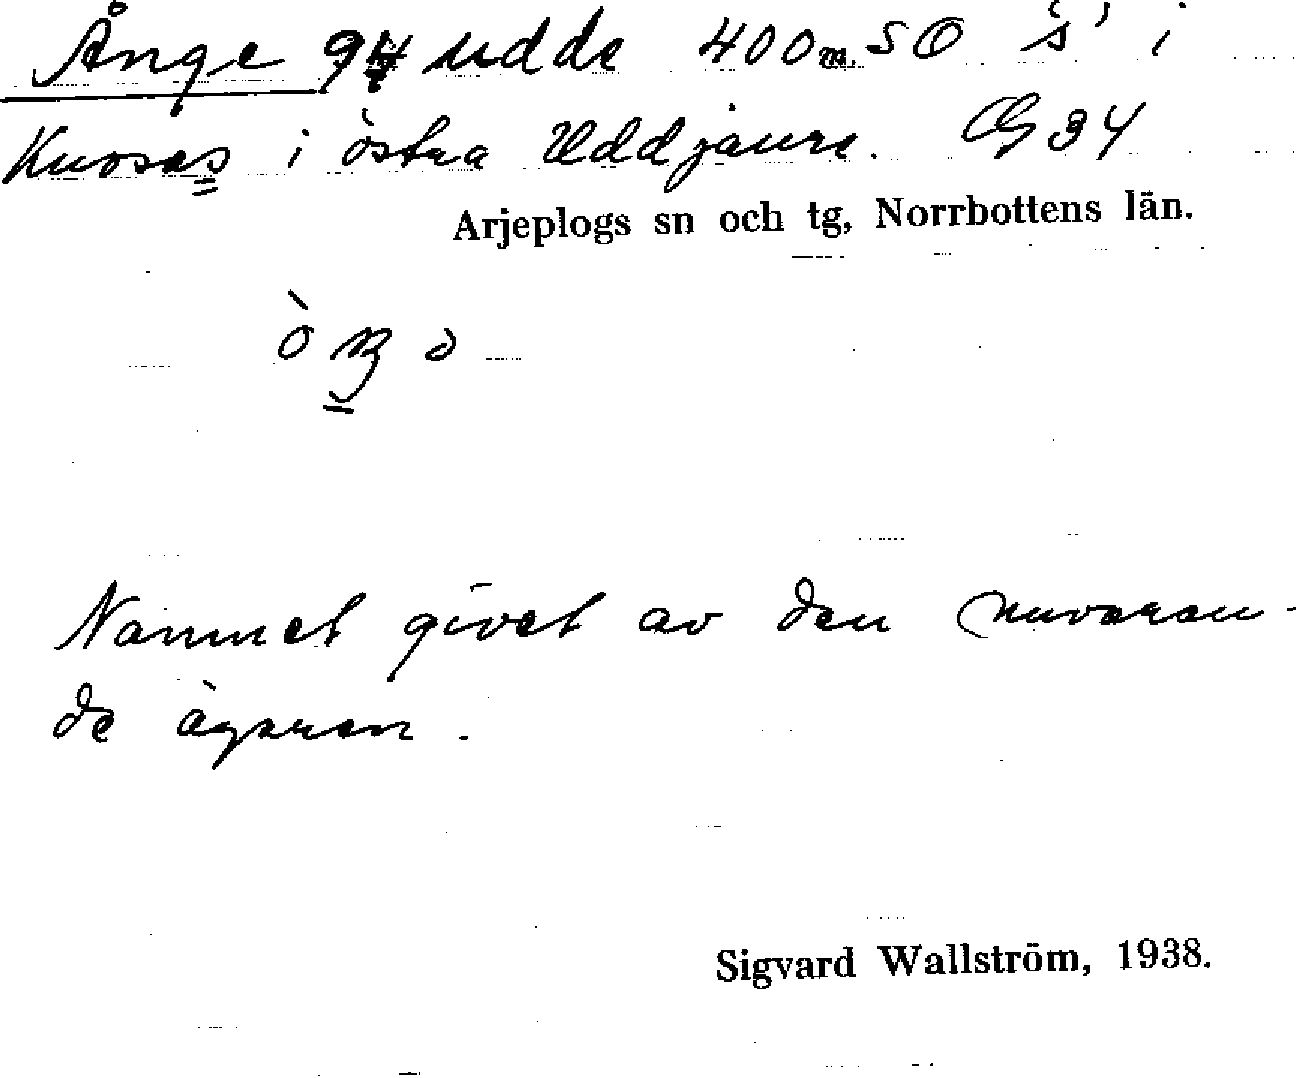 Ånge 94 udde 400 m. SO 's' i
Kuosas i östra Uddjaure. G 34
Arjeplogs sn och tg, Norrbottens län.
Namnet givet av den nuvaran-
de ägaren.
Sigvard Wallström, 1938.